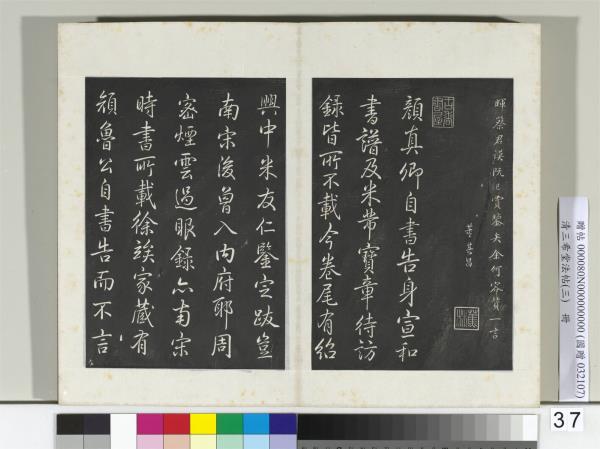 暉蔡君謨既已賞鑒矣余何容贊一言
董其昌
顏真卿自書告身宣和
書譜及米芾寶章待訪
錄皆所不載今卷尾有紹
興中米友仁鑒定跋豈
南宋後曾入內府耶周
密煙雲過眼錄亦南宋
時書所載徐諓家藏有
顏魯公自書告而不言
贈帖 000080N000000000 (國贈 032107)
清三希堂法帖(三) 冊
37